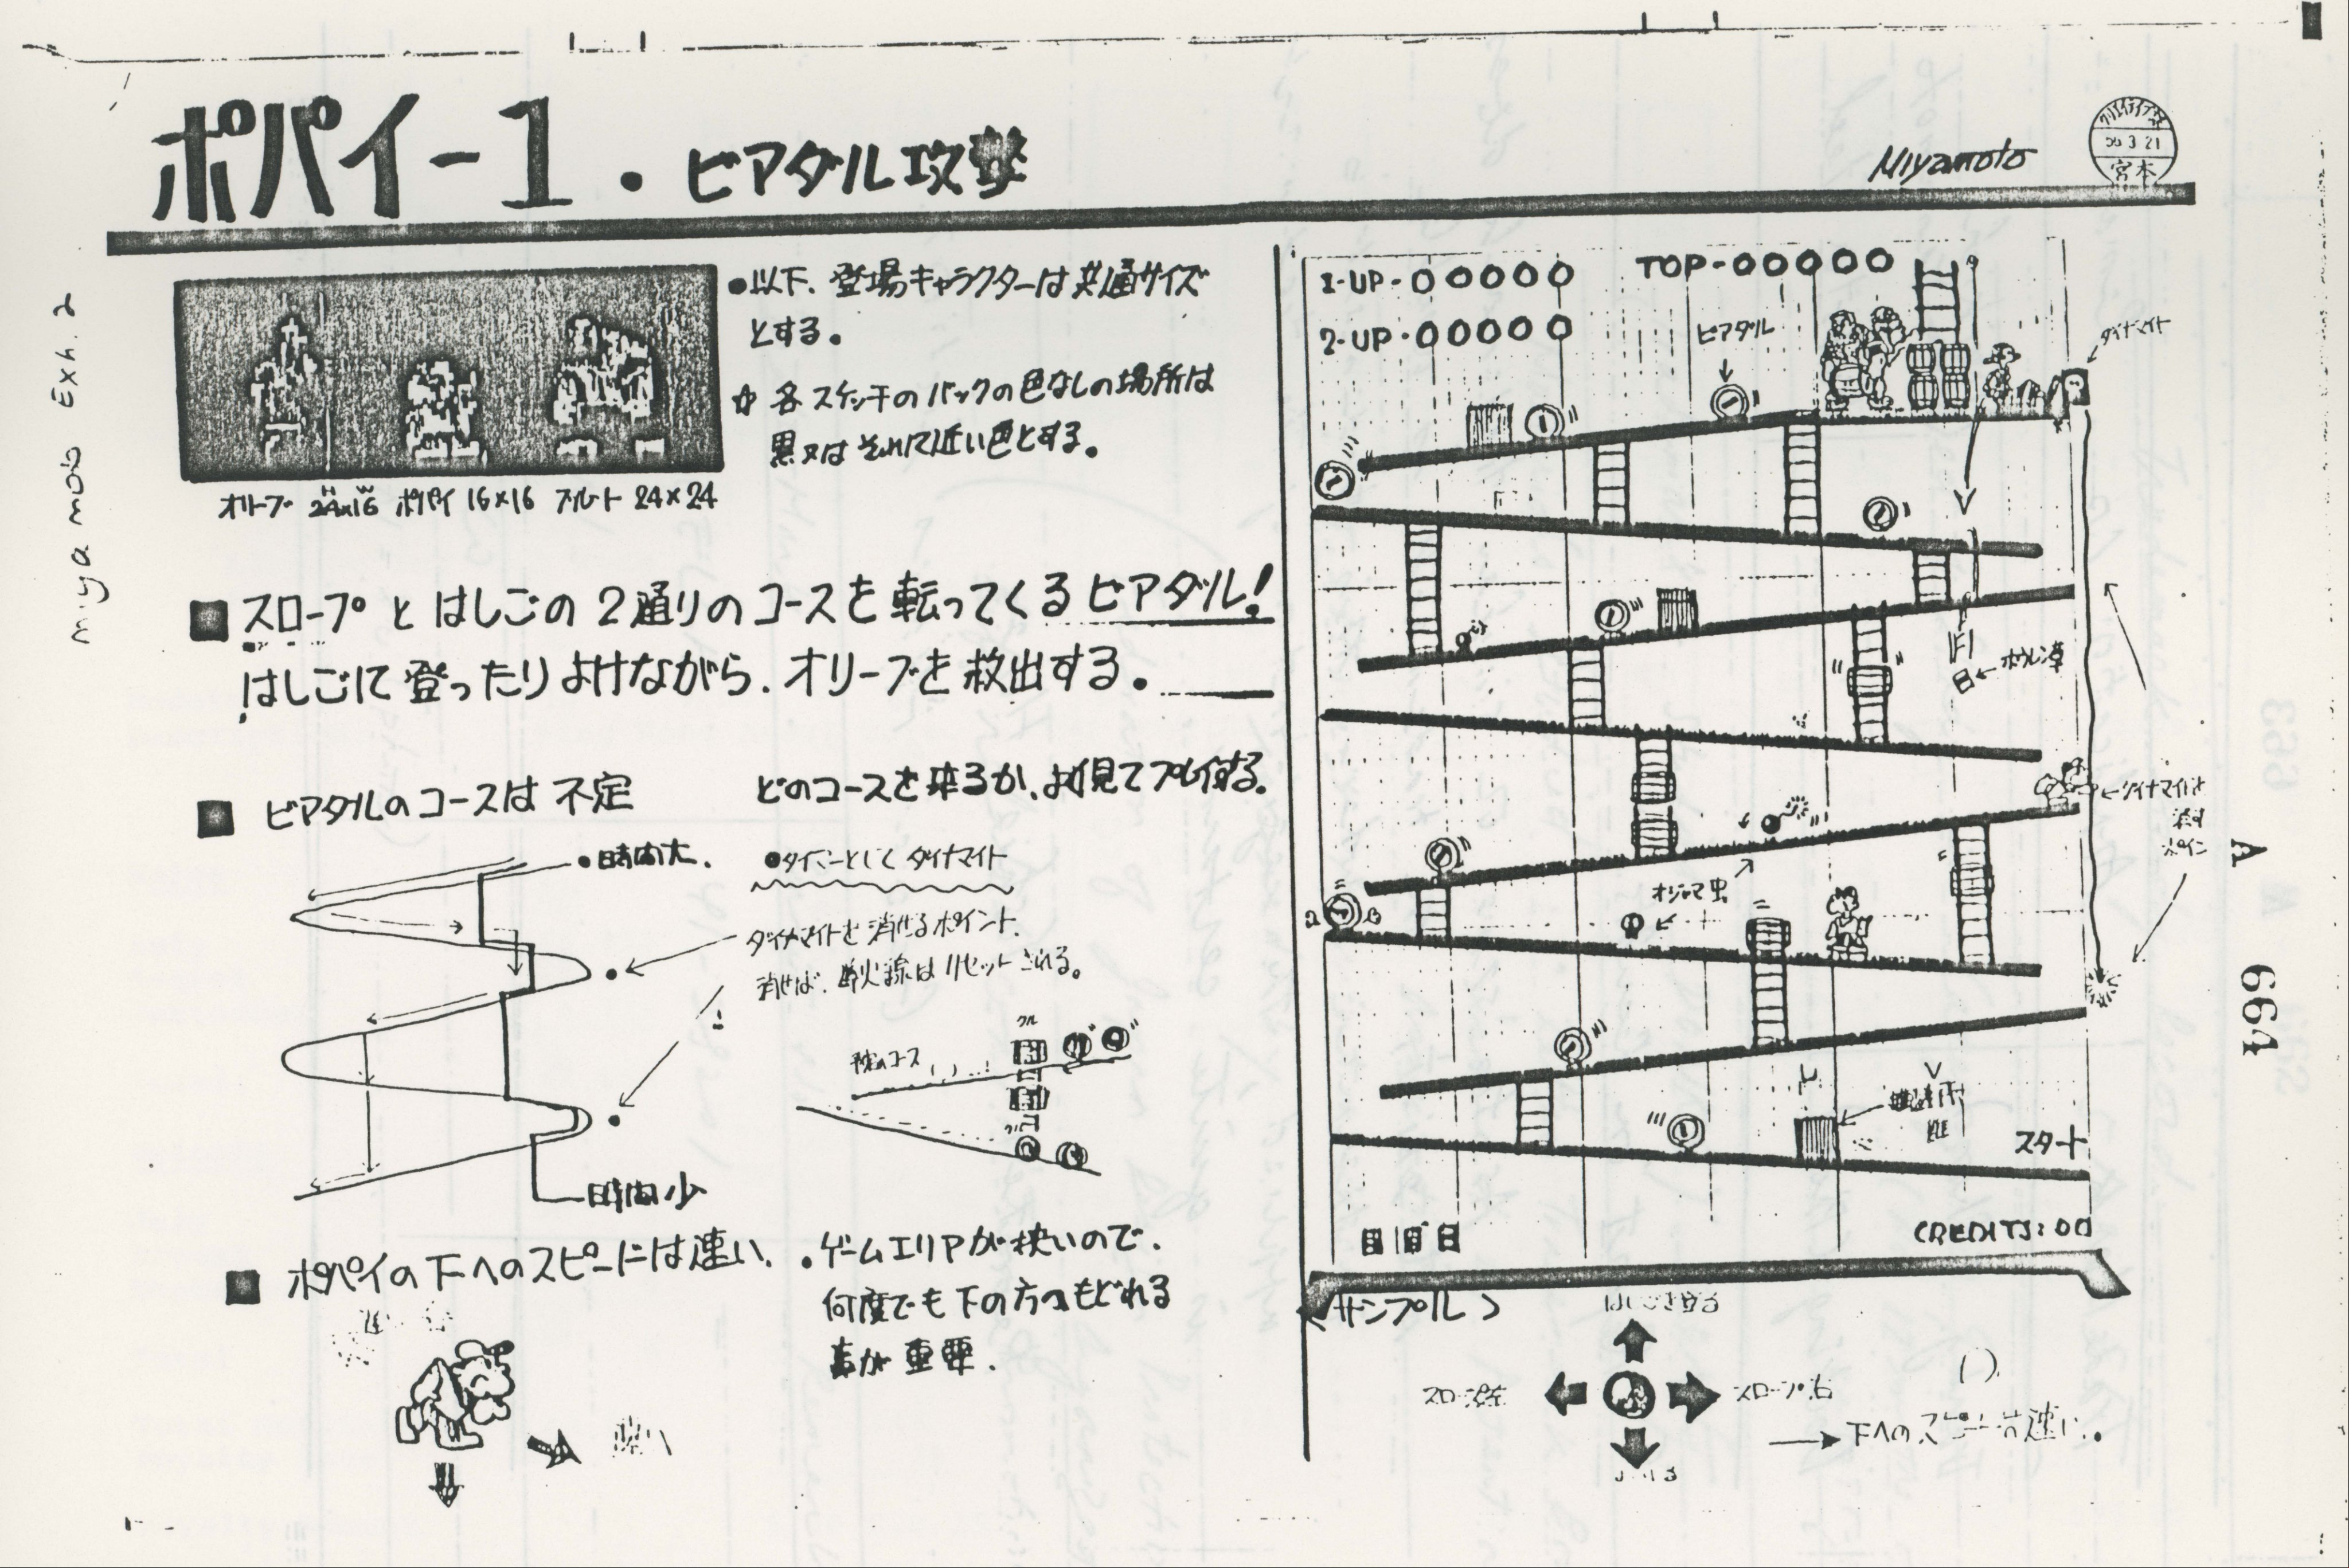 ポパイ-1・ビアダル攻撃
Miyamoto
3 21
宮本
miyamoto Exh. 2
オリーブ 24×16 ポパイ 16×16 ブルート 24×24
●以下、登場キャラクターは共通サイズ
とする。
☆ 各スケッチのバックの色なしの場所は
黒又はそれに近い色とする。
■ スロープとはしごの2通りのコースを転ってくるビアダル!
はしごにて登ったりよけながら、オリーブを救出する。
■ ビアダルのコースは不定
どのコースを来るか、よく見てプレイする。
●時間大、
●タイマーとして ダイナマイト
ダイナマイトを消せるポイント、
消せば、導火線はリセットされる。
コース
時間少
■ ポパイの下へのスピードは速い、
・ゲームエリアが狭いので、
何度でも下の方へもどれる
事が重要.
1-UP-00000
TOP-00000
2-UP-00000
ビアダル
ダイナマイト
ホウレン草
←ダイナマイトを
消す
ポイント
オジャマ虫
スタート
CREDITS:00
<サンプル>
はしごを登る
スロープ左
スロープ右
→下へのスピードは速い。
A
664